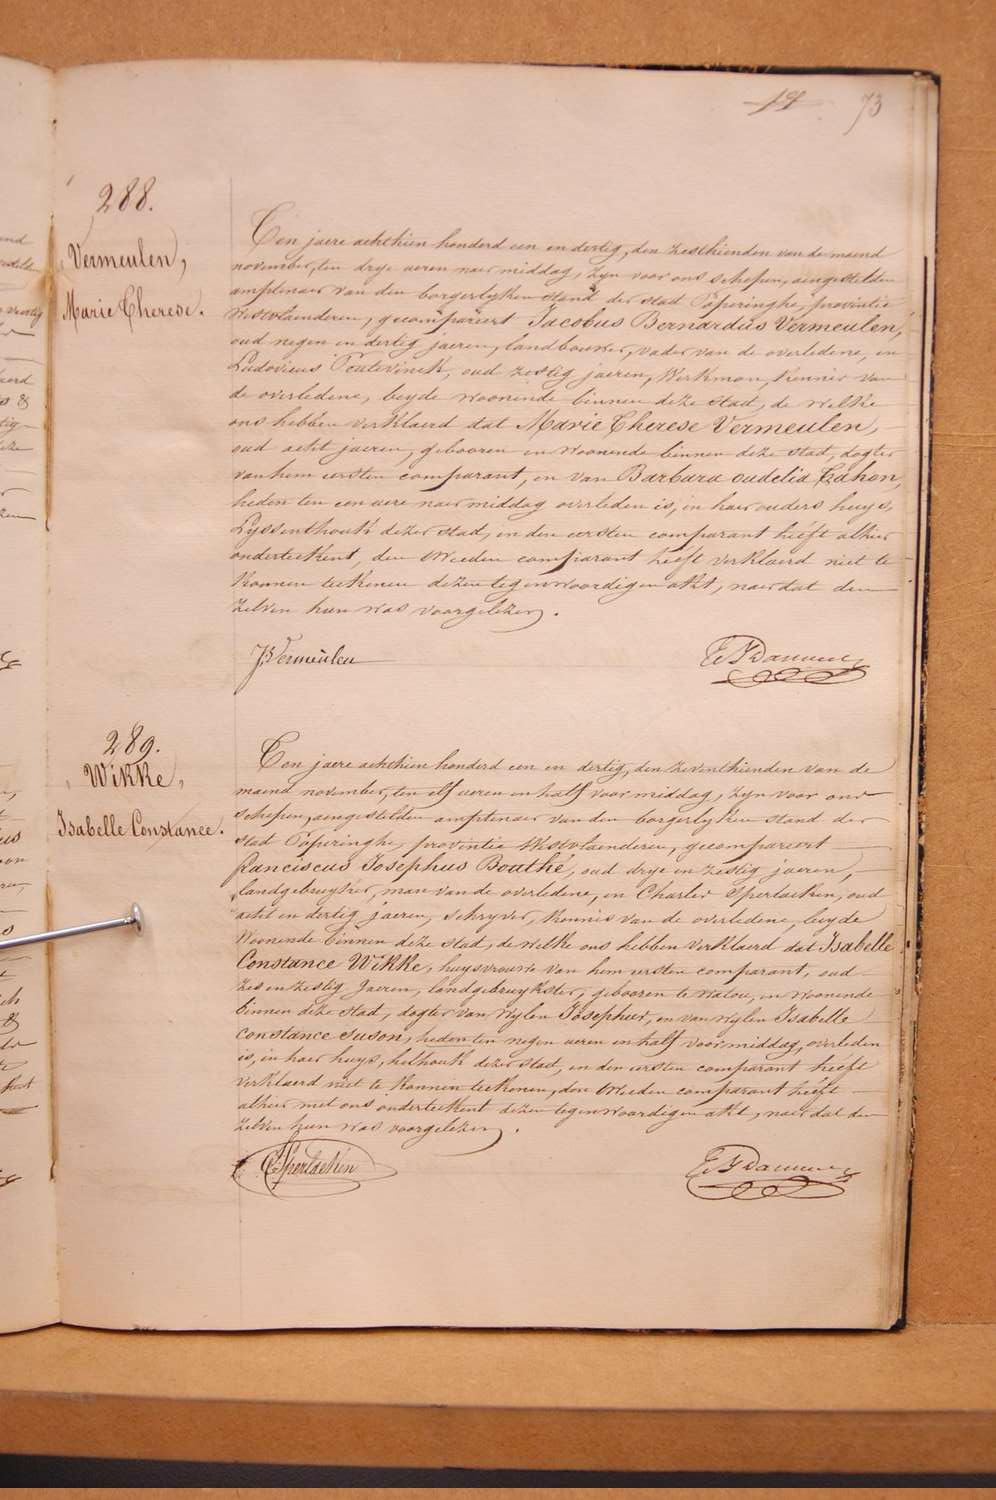 73
288.
Vermeulen,
Marie Therese.
Ten jaere achthien honderd een en dertig, den zesthienden van de maend
november, ten drye ueren naer middag, zyn voor ons schepen, aengestelden
amptenaer van den borgerlyken stand der stad Poperinghe, provintie
Westvlaenderen, gecompareert Jacobus Bernardus Vermeulen,
oud negen en dertig jaeren, landbouwer, vader van de overledene, en
Ludovicus oud zestig jaeren, Werkman, kennis van
de overledene, beyde woonende binnen deze stad, de welke
ons hebben verklaerd dat Marie Therese Vermeulen,
oud acht jaeren, gebooren en woonende binnen deze stad, dogter
van hem eersten comparant, en van Barbara Cahon,
heden ten een uere naer middag overleden is, in haer ouders huys,
Lyssenthouk dezer stad, en den eersten comparant heeft alhier
onderteekent, den tweeden comparant heeft verklaerd niet te
konnen teekenen dezen tegenwoordigen akt, naer dat den
zelven hun was voorgelezen.
J. B. Vermeulen
289.
Wikke,
Isabelle Constance.
Ten jaere achthien honderd een en dertig, den zeventhienden van de
maend november, ten elf ueren en half voor middag, zyn voor ons
schepen, aengestelden amptenaer van den borgerlyken stand der
stad Poperinghe, provintie Westvlaenderen, gecompareert
franciscus Josephus Bouthé, oud drye en zestig jaeren,
landgebruyker, man van de overledene, en Charles Sperlaeken, oud
acht en dertig jaeren, schryver, kennis van de overledene, beyde
woonende binnen deze stad, de welke ons hebben verklaerd dat Isabelle
Constance Wikke, huysvrouw van hem eersten comparant, oud
zes en zestig jaeren, landgebruykster, gebooren te watou, en woonende
binnen deze stad, dogter van wylen Josephus, en van wylen Isabelle
Constance Suson, heden ten negen ueren en half voor middag, overleden
is, in haer huys, helhouk dezer stad, en den eersten comparant heeft
verklaerd niet te konnen teekenen, den tweeden comparant heeft
alhier met ons onderteekent dezen tegenwoordigen akt, naer dat den
zelven hun was voorgelezen.
C. Sperlaeken